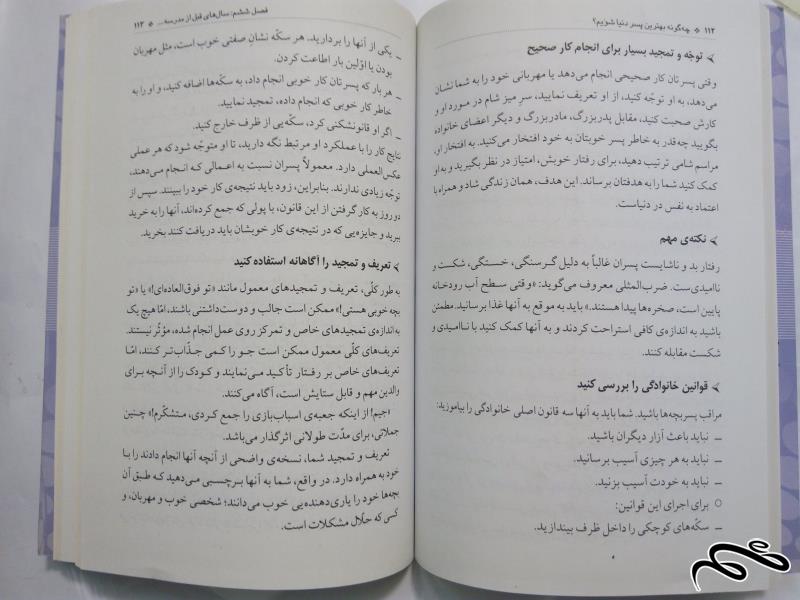 ۱۱۲ * چه‌گونه بهترین پسر دنیا شویم؟
توجّه و تمجید بسیار برای انجام کار صحیح
وقتی پسرتان کار صحیحی انجام می‌دهد یا مهربانی خود را به شما نشان
می‌دهد، به او توجّه کنید، از او تعریف نمایید، سر میز شام در مورد او و
کارش صحبت کنید، مقابل پدربزرگ، مادربزرگ و دیگر اعضای خانواده
بگویید چه‌قدر به خاطر پسر خوبتان به خود افتخار می‌کنید. به افتخار او،
مراسم شامی ترتیب دهید، برای رفتار خوبش، امتیاز در نظر بگیرید و به او
کمک کنید شما را به هدفتان برساند. این هدف، همان زندگی شاد و همراه با
اعتماد به نفس در دنیاست.
نکته‌ی مهم
رفتار بد و ناشایست پسران غالباً به دلیل گرسنگی، خستگی، شکست و
ناامیدی‌ست. ضرب‌المثلی معروف می‌گوید: «وقتی سطح آب رودخانه
پایین است، صخره‌ها پیدا هستند.» باید به موقع به آنها غذا برسانید. مطمئن
باشید به اندازه‌ی کافی استراحت کردند و به آنها کمک کنید با ناامیدی و
شکست مقابله کنند.
قوانین خانوادگی را بررسی کنید
مراقب پسربچه‌ها باشید. شما باید به آنها سه قانون اصلی خانوادگی را بیاموزید:
_ نباید باعث آزار دیگران باشید.
_ نباید به هر چیزی آسیب برسانید.
_ نباید به خودت آسیب بزنید.
○ برای اجرای این قوانین:
_ سکّه‌های کوچکی را داخل ظرف بیندازید.
فصل ششم: سال‌های قبل از مدرسه... * ۱۱۳
_ یکی از آنها را بردارید. هر سکّه نشانِ صفتی خوب است، مثل مهربان
بودن یا اوّلین بار اطاعت کردن.
_ هر بار که پسرتان کار خوبی انجام داد، به سکّه‌ها اضافه کنید، و او را به
خاطر کار خوبی که انجام داده، تمجید نمایید.
_ اگر او قانون‌شکنی کرد، سکّه‌یی از ظرف خارج کنید.
نتایج کار را با عملکرد او مرتبط نگه دارید، تا او متوجّه شود که هر عملی
عکس‌العملی دارد. معمولاً پسران نسبت به اعمالی که انجام می‌دهند،
توجّه زیادی ندارند. بنابراین، زود باید نتیجه‌ی کار خود را ببینند. سپس از
دو روز به کار گرفتن از این قانون، با پولی که جمع کرده‌اند، آنها را به خرید
ببرید و جایزه‌یی که در نتیجه‌ی کار خوبشان باید دریافت کنند بخرید.
تعریف و تمجید را آگاهانه استفاده کنید
به طور کلّی، تعریف و تمجیدهای معمول مانند «تو فوق‌العاده‌ای!» یا «تو
بچه خوبی هستی!» ممکن است جالب و دوست‌داشتنی باشند، امّا هیچ یک
به اندازه‌ی تمجیدهای خاص و تمرکز روی عمل انجام شده، مؤثّر نیستند.
تعریف‌های کلّی معمول ممکن است جو را کمی جذّاب‌تر کنند، امّا
تعریف‌های خاص بر رفتار تأکید می‌نمایند و کودک را از آنچه برای
والدین مهم و قابل ستایش است، آگاه می‌کنند.
«جیم! از اینکه جعبه‌ی اسباب‌بازی را جمع کردی، متشکّرم!» چنین
جملاتی، برای مدّت طولانی اثرگذار می‌باشد.
تعریف و تمجید شما، نسخه‌ی واضحی از آنچه آنها انجام دادند را با
خود به همراه دارد. در واقع، شما به آنها برچسبی می‌دهید که طبق آن
بچه‌ها خود را یاری‌دهنده‌یی خوب می‌دانند؛ شخصی خوب و مهربان، و
کسی که حلّال مشکلات است.